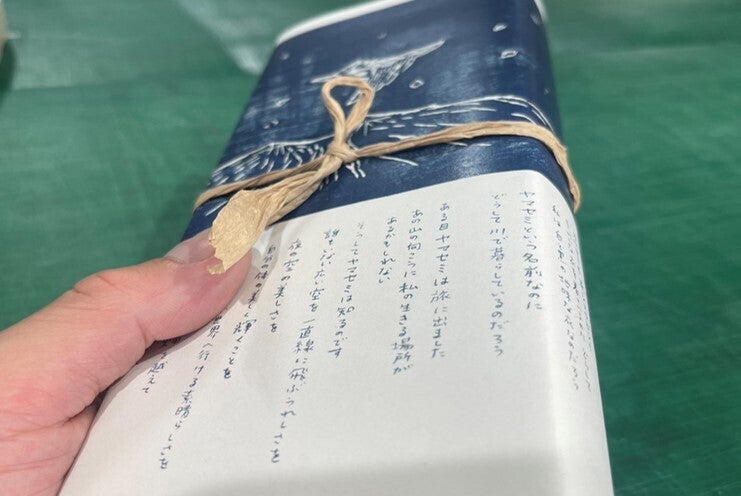 ヤマセミという名前なのに
どうして川で暮らしているのだろう
ある日ヤマセミは旅に出ました
あの山の向こうに私の生きる場所が
あるかもしれない
そうしてヤマセミは知るのです
誰もいない空を一直線に飛ぶうれしさを
夜の空の美しさを
自分の体の美しく輝くことを
世界へ行ける素晴らしさを
越えて